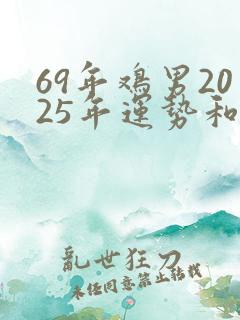 69年鸡男20
25年運勢和
亂世狂刀
未经同意禁止转载